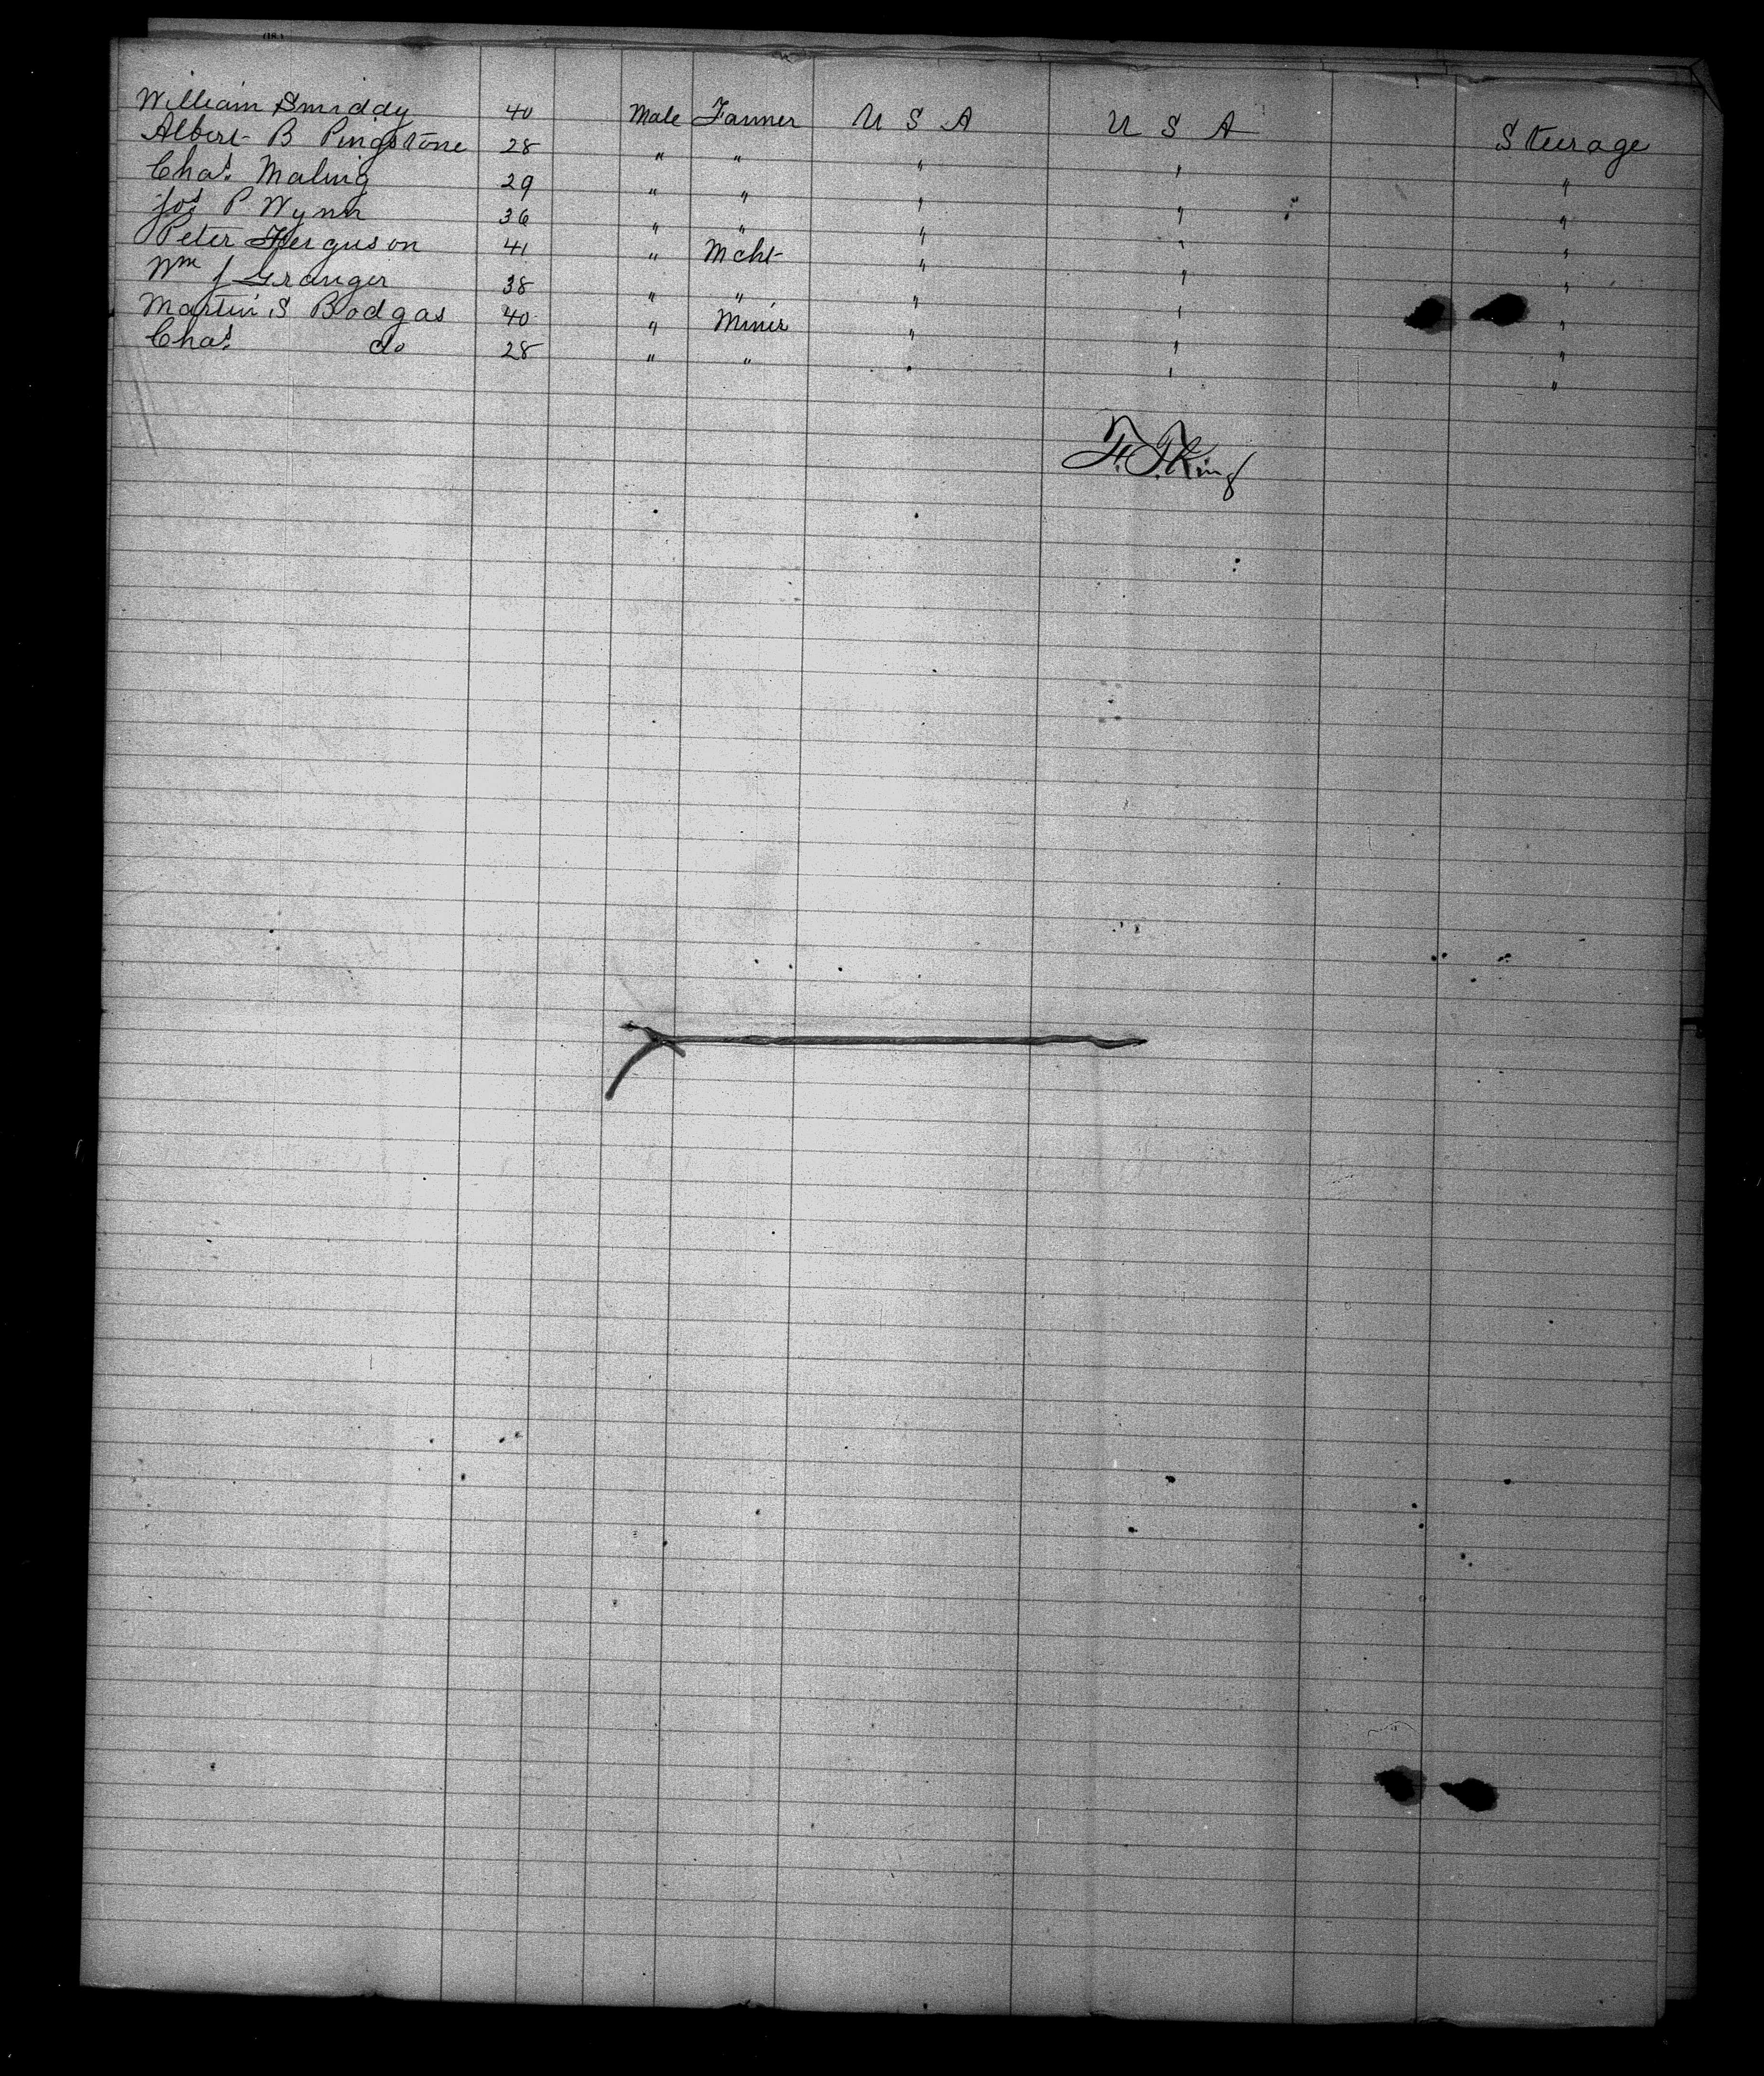 William Smiddy 40 Male Farmer U S A U S A Steerage
Albert B Pingstone 28 " " " " "
Chas. Maling 29 " " " " "
Jos P. Wynn 36 " " " " "
Peter Ferguson 41 " Mcht " " "
Wm J Granger 38 " " " " "
Martin S Bodgas 40 " Miner " " "
Chas. do 28 " " " " "
F. T. King